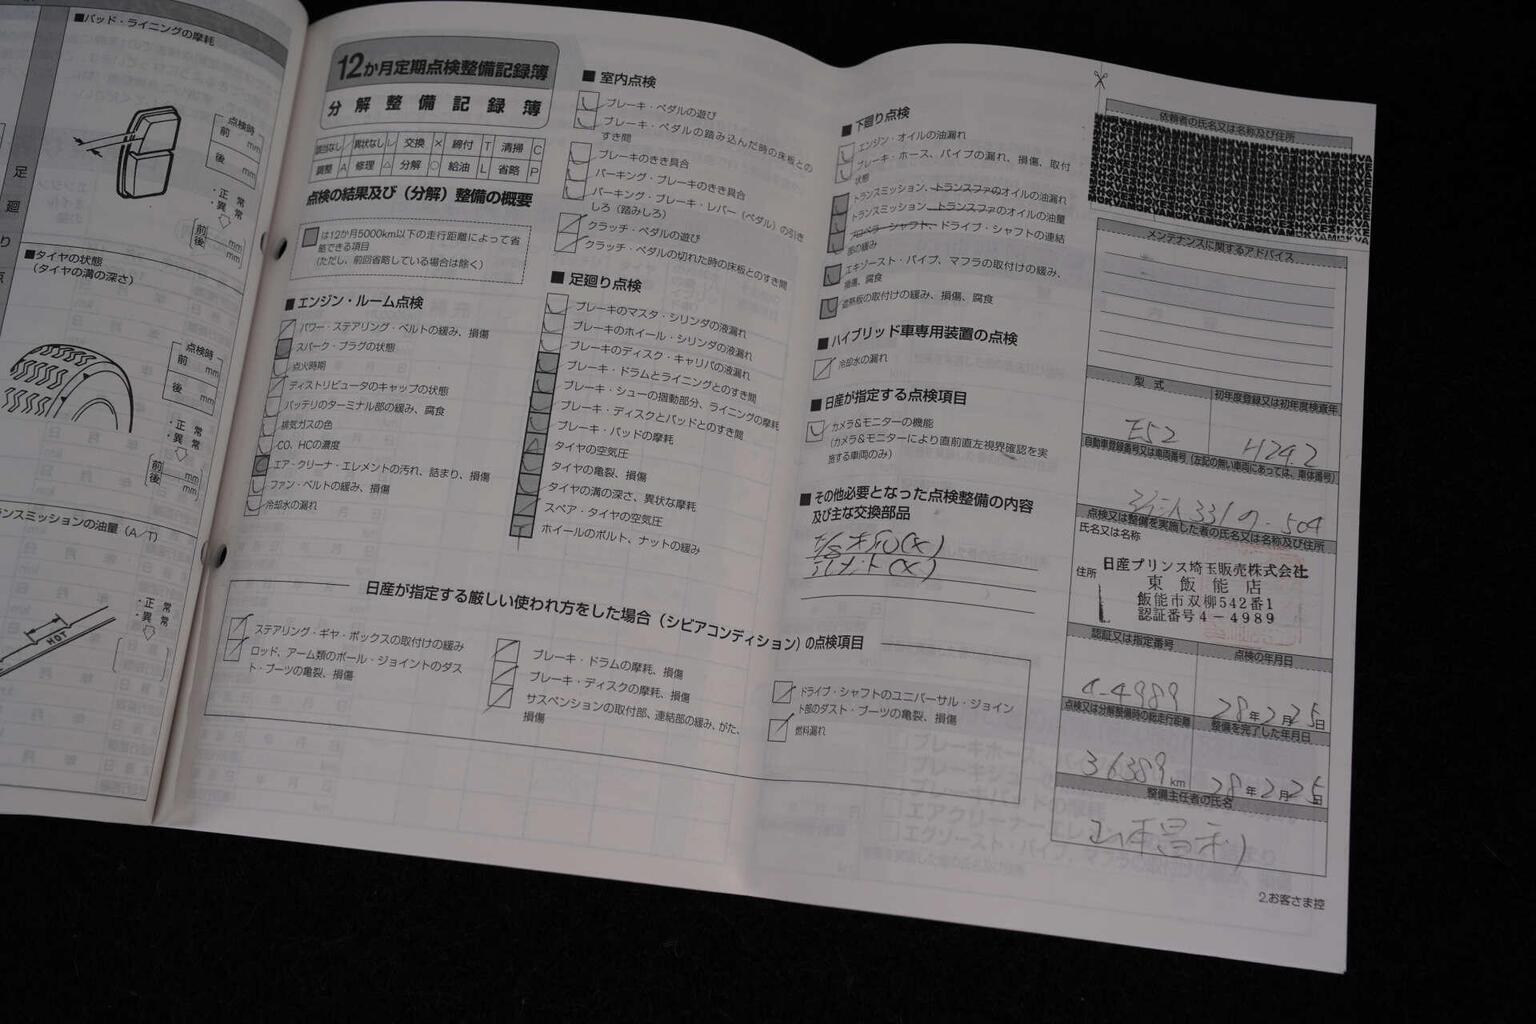 ■パッド・ライニングの摩耗
点検時
前
mm
後
mm
・正常
・異常
前 mm
後 mm
足
廻
り
点
■タイヤの状態
(タイヤの溝の深さ)
点検時
前
mm
後
mm
・正常
・異常
前 mm
後 mm
ンスミッションの油量(A/T)
・正常
・異常
HOT
12か月定期点検整備記録簿
分解整備記録簿
該当なし / 異状なし レ 交換 × 締付 T 清掃 C
調整 A 修理 △ 分解 ○ 給油 L 省略 P
点検の結果及び(分解)整備の概要
は12か月5000km以下の走行距離によって省
略できる項目
(ただし、前回省略している場合は除く)
■エンジン・ルーム点検
パワー・ステアリング・ベルトの緩み、損傷
スパーク・プラグの状態
点火時期
ディストリビュータのキャップの状態
バッテリのターミナル部の緩み、腐食
排気ガスの色
CO、HCの濃度
エア・クリーナ・エレメントの汚れ、詰まり、損傷
ファン・ベルトの緩み、損傷
冷却水の漏れ
■室内点検
ブレーキ・ペダルの遊び
ブレーキ・ペダルの踏み込んだ時の床板との
すき間
ブレーキのきき具合
パーキング・ブレーキのきき具合
パーキング・ブレーキ・レバー(ペダル)の引き
しろ(踏みしろ)
クラッチ・ペダルの遊び
クラッチ・ペダルの切れた時の床板とのすき間
■足廻り点検
ブレーキのマスタ・シリンダの液漏れ
ブレーキのホイール・シリンダの液漏れ
ブレーキのディスク・キャリパの液漏れ
ブレーキ・ドラムとライニングとのすき間
ブレーキ・シューの摺動部分、ライニングの摩耗
ブレーキ・ディスクとパッドとのすき間
ブレーキ・パッドの摩耗
タイヤの空気圧
タイヤの亀裂、損傷
タイヤの溝の深さ、異状な摩耗
スペア・タイヤの空気圧
ホイールのボルト、ナットの緩み
■下廻り点検
エンジン・オイルの油漏れ
ブレーキ・ホース、パイプの漏れ、損傷、取付
状態
トランスミッション、トランスファのオイルの油漏れ
トランスミッション、トランスファのオイルの油量
プロペラ・シャフト、ドライブ・シャフトの連結
部の緩み
エキゾースト・パイプ、マフラの取付けの緩み、
損傷、腐食
遮熱板の取付けの緩み、損傷、腐食
■ハイブリッド車専用装置の点検
冷却水の漏れ
■日産が指定する点検項目
カメラ&モニターの機能
(カメラ&モニターにより直前直左視界確認を実
施する車両のみ)
■その他必要となった点検整備の内容
及び主な交換部品
日産が指定する厳しい使われ方をした場合(シビアコンディション)の点検項目
ステアリング・ギヤ・ボックスの取付けの緩み
ロッド、アーム類のボール・ジョイントのダス
ト・ブーツの亀裂、損傷
ブレーキ・ドラムの摩耗、損傷
ブレーキ・ディスクの摩耗、損傷
サスペンションの取付部、連結部の緩み、がた、
損傷
ドライブ・シャフトのユニバーサル・ジョイン
ト部のダスト・ブーツの亀裂、損傷
燃料漏れ
依頼者の氏名又は名称及び住所
メンテナンスに関するアドバイス
型式
初年度登録又は初年度検査年
E52
H24 2
自動車登録番号又は車両番号(左記の無い車両にあっては、車体番号)
331 の 504
点検又は整備を実施した者の氏名又は名称及び住所
氏名又は名称
住所
日産プリンス埼玉販売株式会社
東飯能店
飯能市双柳542番1
認証番号4-4989
認証又は指定番号
点検の年月日
4-4989
28年2月25日
点検又は分解整備時の総走行距離
整備を完了した年月日
36389 km
28年2月25日
整備主任者の氏名
2.お客さま控